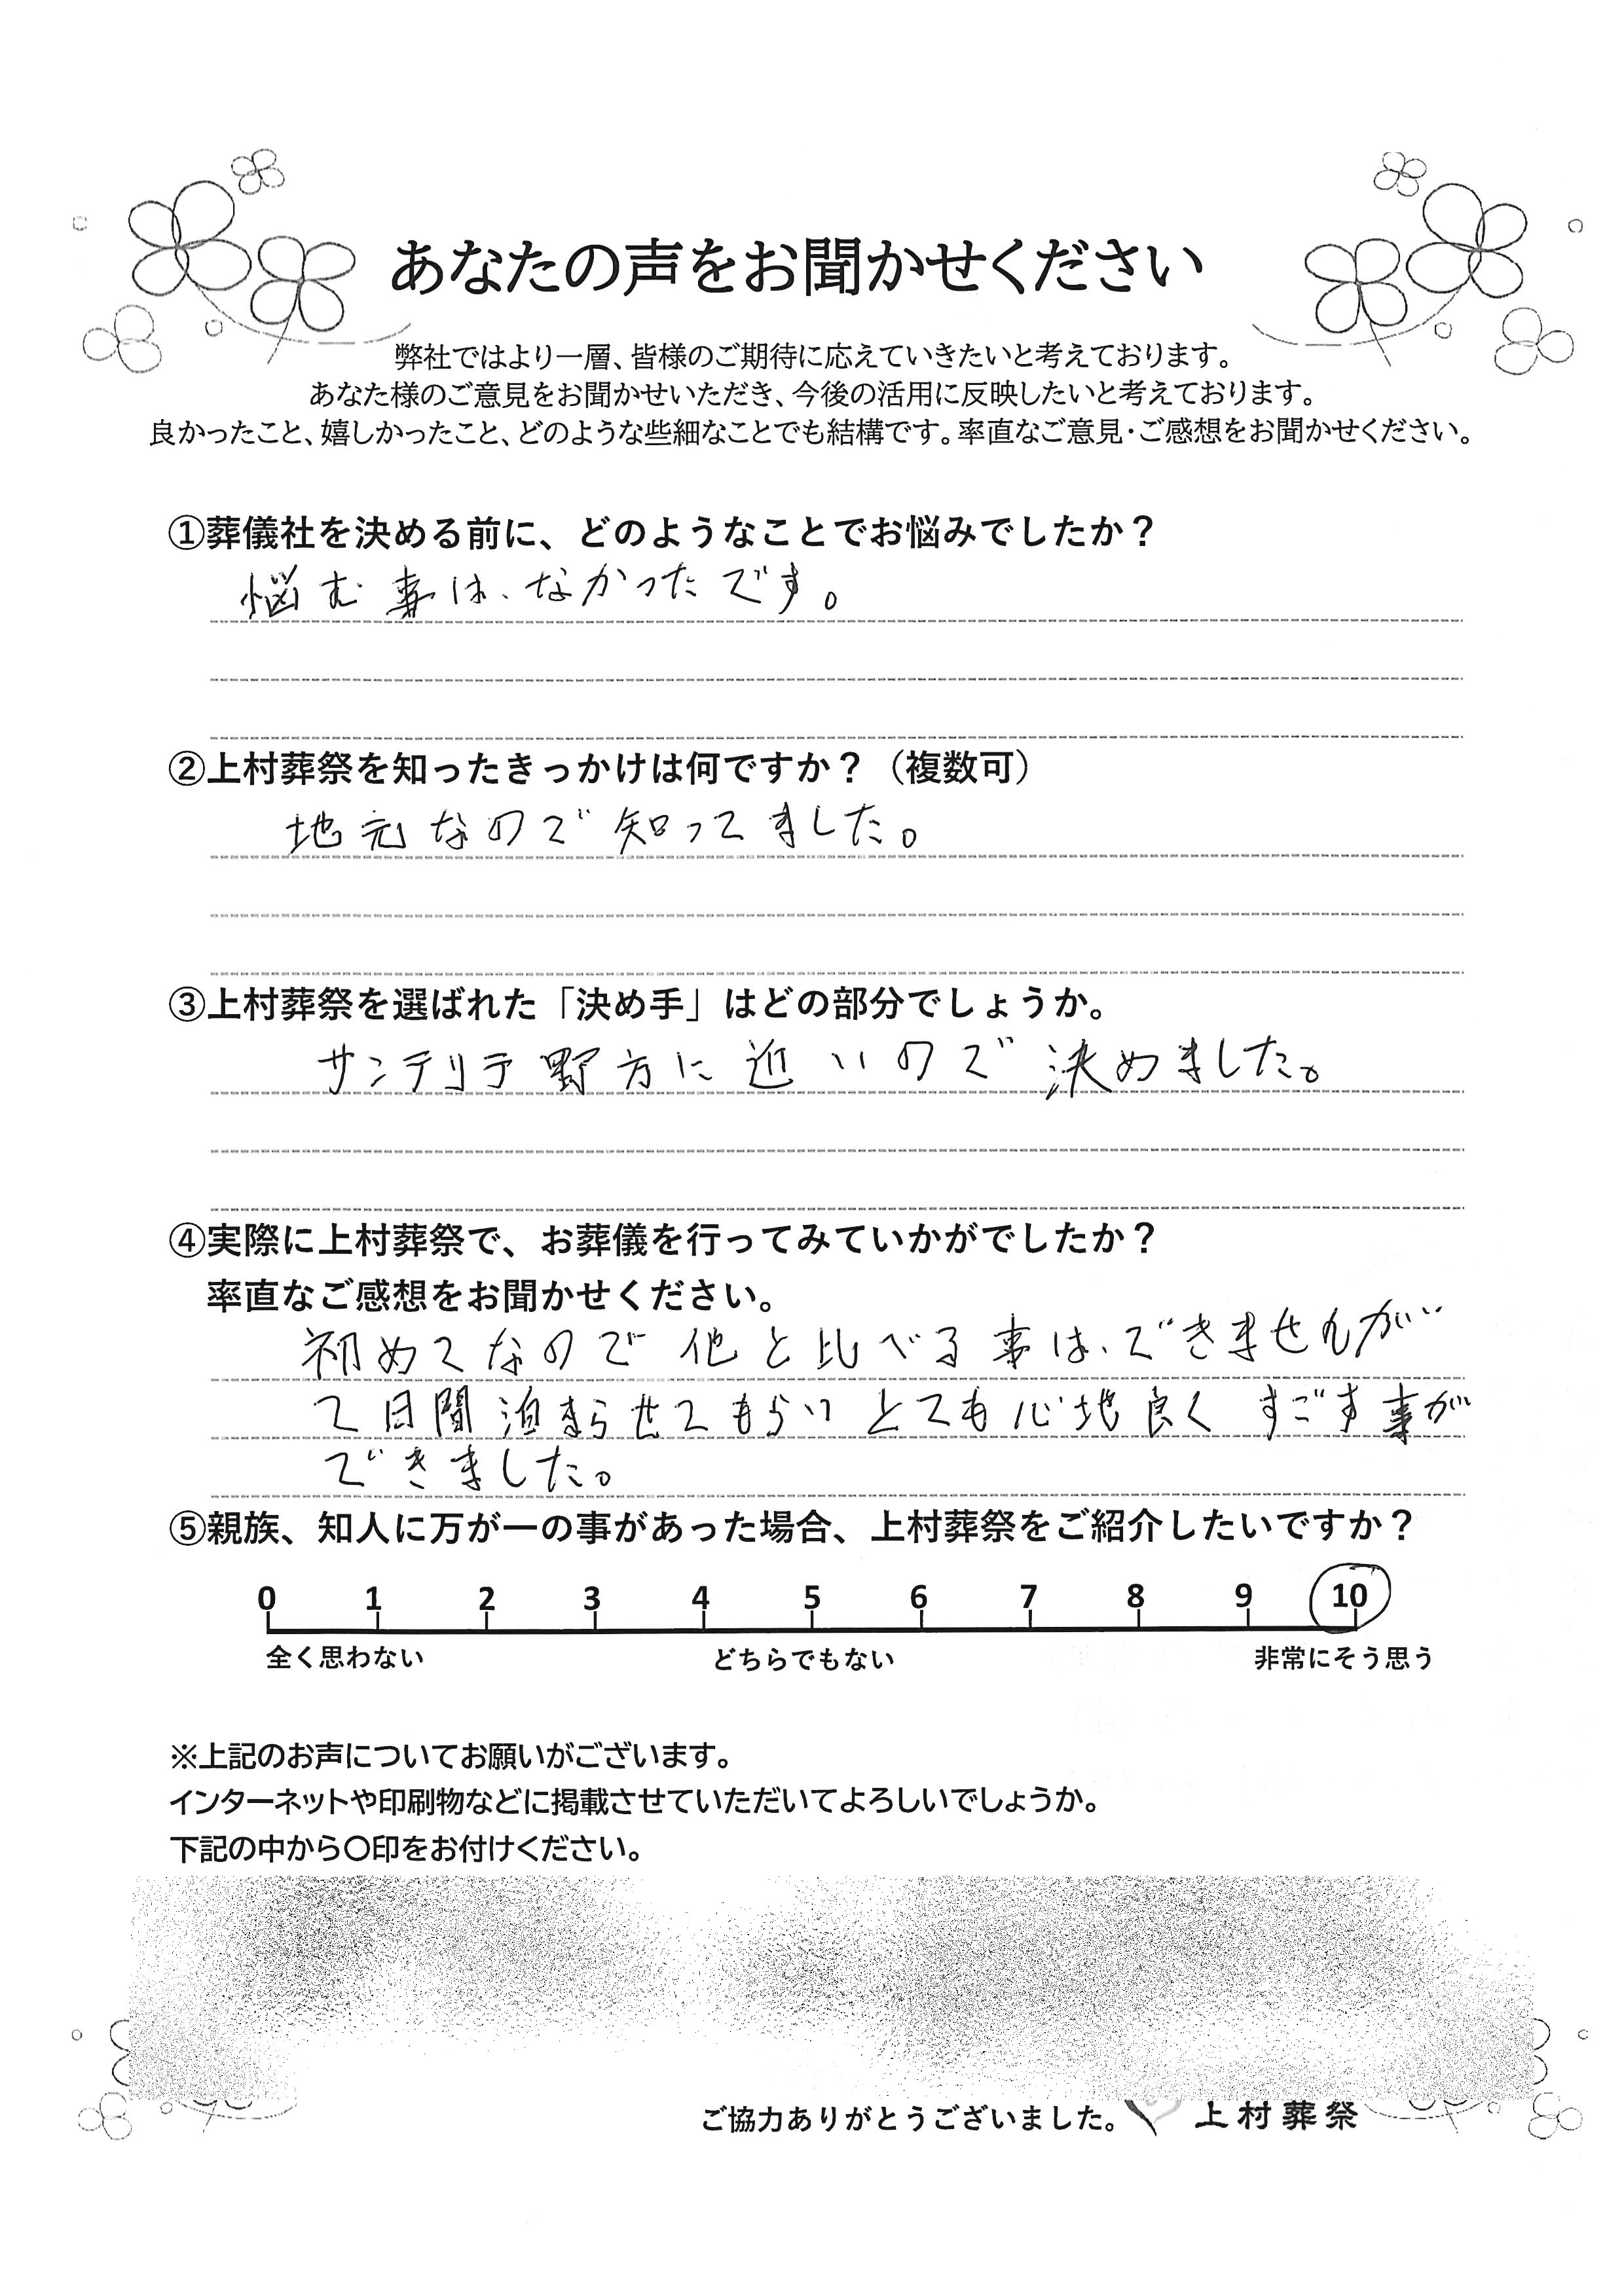 あなたの声をお聞かせください
弊社ではより一層、皆様のご期待に応えていきたいと考えております。
あなた様のご意見をお聞かせいただき、今後の活用に反映したいと考えております。
良かったこと、嬉しかったこと、どのような些細なことでも結構です。率直なご意見・ご感想をお聞かせください。
①葬儀社を決める前に、どのようなことでお悩みでしたか？
悩む事は、なかったです。
②上村葬祭を知ったきっかけは何ですか？（複数可）
地元なので知ってました。
③上村葬祭を選ばれた「決め手」はどの部分でしょうか。
サンテリテ野方に近いので決めました。
④実際に上村葬祭で、お葬儀を行ってみていかがでしたか？
率直なご感想をお聞かせください。
初めてなので他と比べる事は、できませんが
2日間泊まらせてもらいとても心地良くすごす事が
できました。
⑤親族、知人に万が一の事があった場合、上村葬祭をご紹介したいですか？
0 1 2 3 4 5 6 7 8 9 10
全く思わない どちらでもない 非常にそう思う
※上記のお声についてお願いがございます。
インターネットや印刷物などに掲載させていただいてよろしいでしょうか。
下記の中から〇印をお付けください。
ご協力ありがとうございました。 上村葬祭